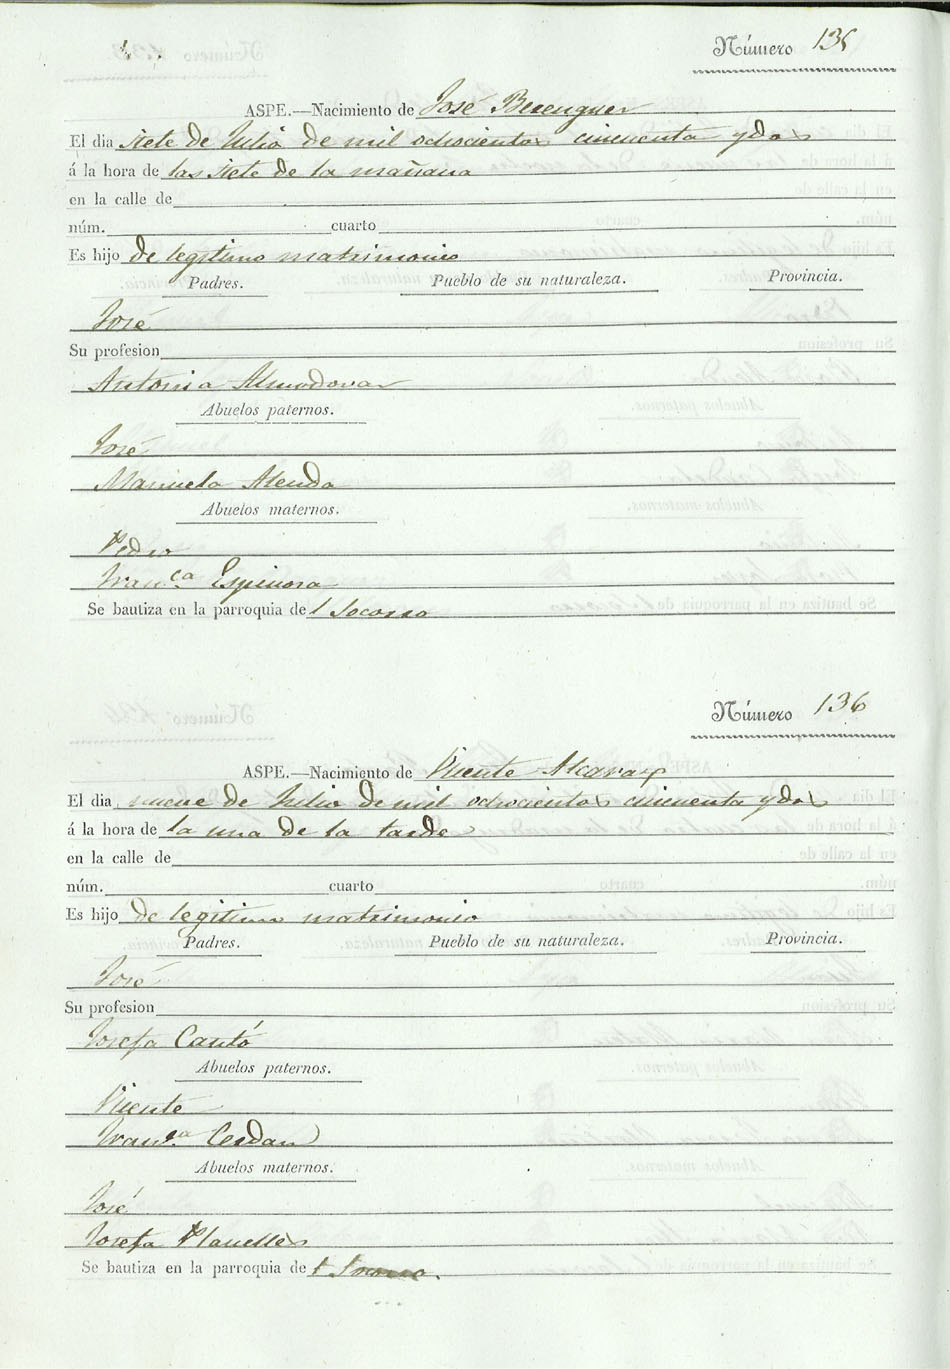 Número 135
ASPE.—Nacimiento de José Berenguer
El dia siete de Julio de mil ochocientos cincuenta y dos
á la hora de las siete de la mañana
en la calle de
núm. cuarto
Es hijo de legitimo matrimonio
Padres. Pueblo de su naturaleza. Provincia.
José
Su profesion
Antonia Almodovar
Abuelos paternos.
José
Manuela Alenda
Abuelos maternos.
Pedro
Franca Espinosa
Se bautiza en la parroquia del Socorro
Número 136
ASPE.—Nacimiento de Vicente Alcaraz
El dia nueve de Julio de mil ochocientos cincuenta y dos
á la hora de la una de la tarde
en la calle de
núm. cuarto
Es hijo de legitimo matrimonio
Padres. Pueblo de su naturaleza. Provincia.
José
Su profesion
Josefa Cantó
Abuelos paternos.
Vicente
Franca Cerdan
Abuelos maternos.
José
Josefa Planelles
Se bautiza en la parroquia del Socorro.